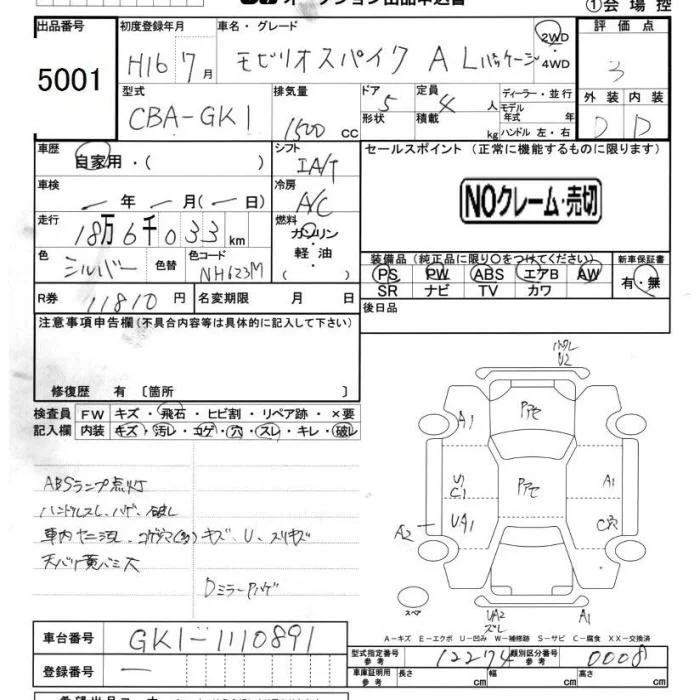 オークション出品申込書
①会場控
出品番号 初度登録年月 車名・グレード 評価点
5001 H16 7月 モビリオスパイク A Lパッケージ 2WD・4WD 3
型式 排気量 ドア 定員 ディーラー・並行 外装 内装
CBA-GK1 1500cc 5 4人 モデル年式 年 D D
形状 積載 kg ハンドル 左・右
車歴 自家用・( ) シフト IA/T セールスポイント (正常に機能するものに限ります)
車検 ー年ー月(ー日) 冷房 A/C
NOクレーム・売切
走行 18万6千033km 燃料 ガソリン 軽油 ( )
色 シルバー 色替 色コード NH623M
装備品(純正品に限り○をつけてください) 新車保証書
PS PW ABS エアB AW 有・無
SR ナビ TV カワ
R券 11810円 名変期限 月 日 後日品
注意事項申告欄(不具合内容等は具体的に記入して下さい)
修復歴 有 〔箇所 〕
検査員 FW キズ・飛石・ヒビ割・リペア跡・×要
記入欄 内装 キズ・汚レ・コゲ・穴・スレ・キレ・破レ
ABSランプ点灯
ハンドルスレ、ハゲ、破レ
Dミラーハゲ
U2
A1
A1
U
C1
UA1
A2
A1
スペア
UA2
ズレ
A1
A-キズ E-エクボ U-凹み W-補修跡 S-サビ C-腐食 XX-交換済
車台番号 GK1-1110891
型式指定番号 参考 12274 類別区分番号 参考 0008
登録番号 ー
車庫証明用 参考 長さ cm 幅 cm 高さ cm